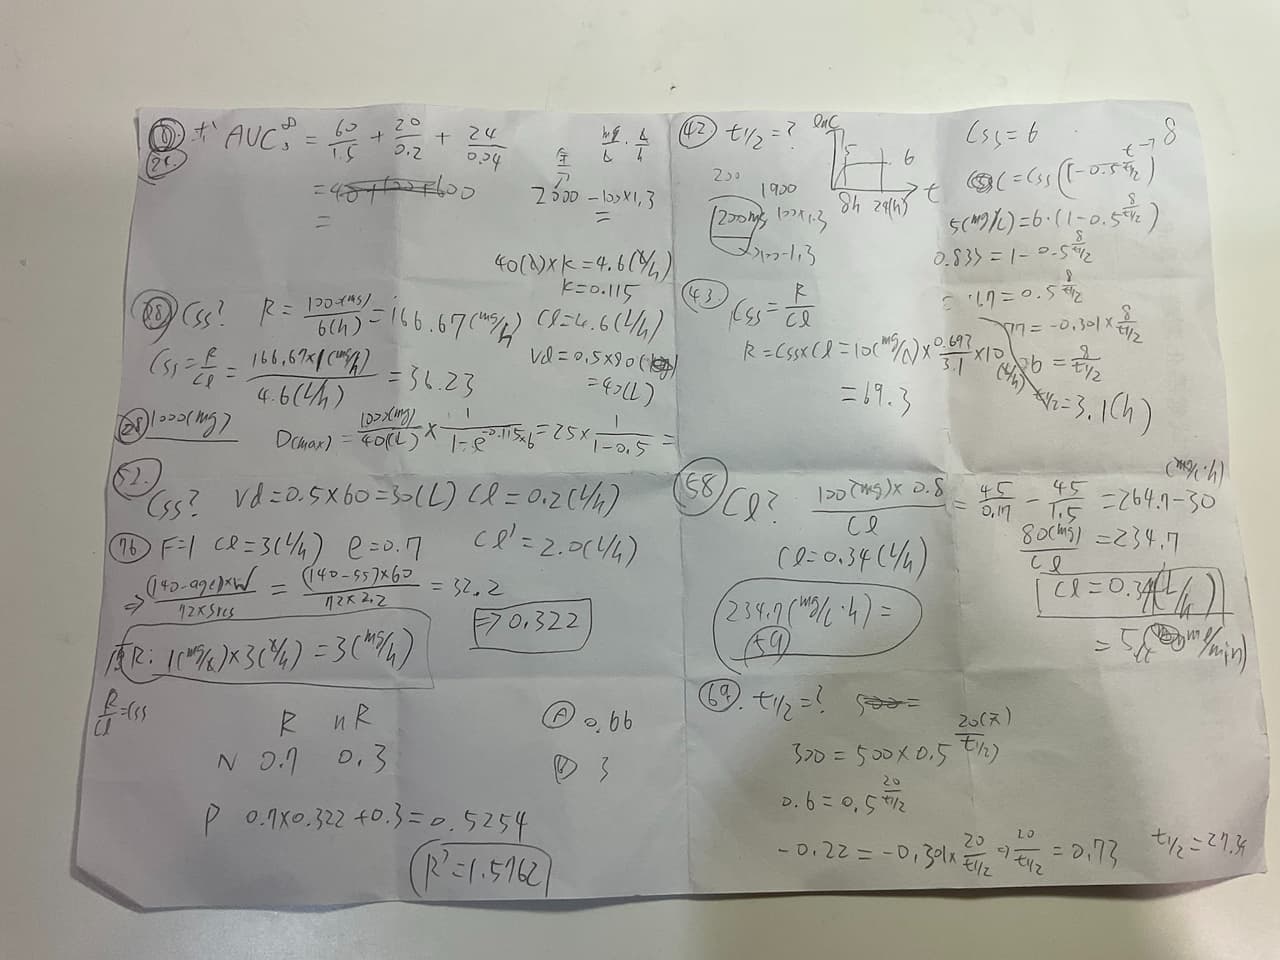 AUC = 60/1.5 + 20/0.2 + 24/0.04
=
2000 - 100×1.3
=
mg/h · h/h
40(L)×K = 4.6(L/h)
K=0.115
Css? R = 1000(mg)/6(h) = 166.67(mg/h) Cl=4.6(L/h)
Css = R/Cl = 166.67×1(mg/h)/4.6(L/h) = 36.23
Vd=0.5×80(kg)
=40(L)
28 1000(mg)
D(max) = 1000(mg)/40(L) × 1/1-e^-0.115×6 = 25× 1/1-0.5 =
52.
Css? Vd=0.5×60=30(L) Cl=0.2(L/h)
76 F=1 Cl=3(L/h) e=0.7 Cl'=2.0(L/h)
⇒ (140-age)×W/72×Srcs = (140-55)×60/72×2.2 = 32.2
⇒0.322
R: 1(mg/L)×3(L/h) = 3(mg/h)
R/Cl=Css
R nR
N 0.7 0.3
P 0.7×0.322+0.3=0.5254
R'=1.5762
A 0.66
3
42. t1/2=?
lnC
5 6
8h 24(h) t
200
1900
200mg 100×1.3
Css=6
t→8
C=Css(1-0.5^t/t1/2)
5(mg/L)=6·(1-0.5^8/t1/2)
0.833=1-0.5^8/t1/2
.17=0.5^8/t1/2
77=-0.301×8/t1/2
=8/t1/2
t1/2=3.1(h)
43. Css=R/Cl
R=Css×Cl=10(mg/L)×0.693/3.1×10
(L/h)
=69.3
58 Cl? 100(mg)×0.8/Cl = 45/0.17 - 45/1.5 = 264.7-30
(mg/L·h)
80(mg)/Cl = 234.7
Cl=0.34(L/h)
Cl=0.34(L/h)
234.7(mg/L·h)=
59
(ml/min)
69. t1/2=?
300=500×0.5^20(天)/t1/2
0.6=0.5^20/t1/2
-0.22=-0.301×20/t1/2 ⇒ 20/t1/2=0.73 t1/2=27.39